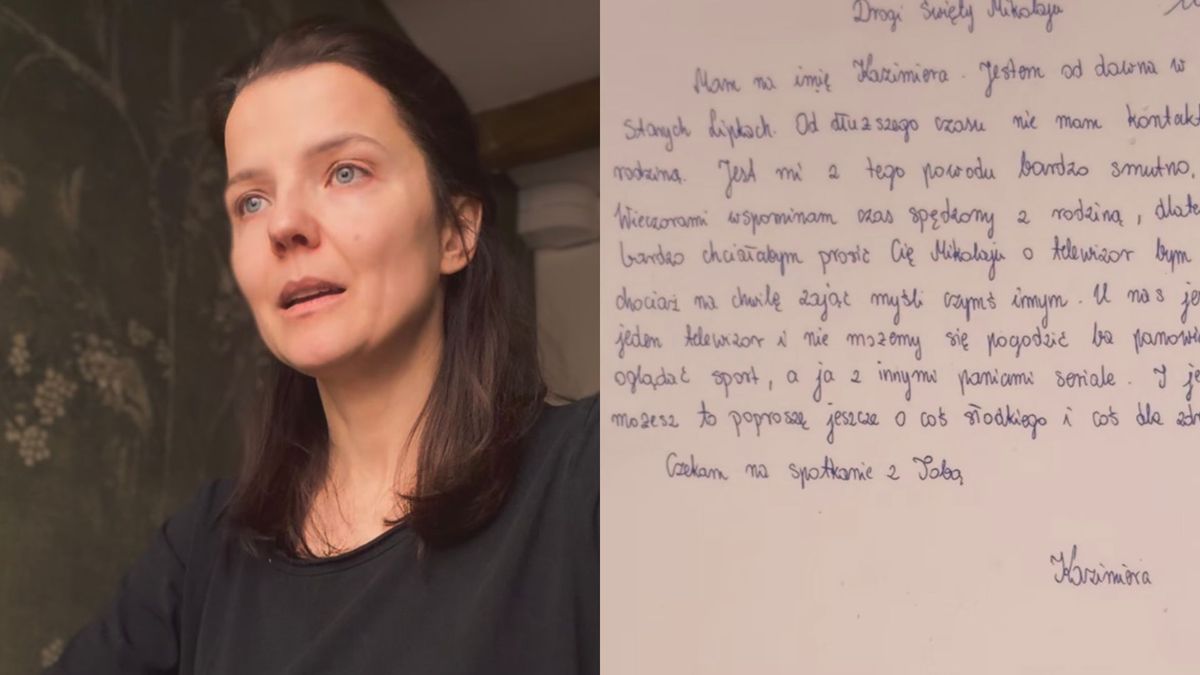 Drogi Święty Mikołaju
Mam na imię Kazimiera. Jestem od dawna w
Starych Lipkach. Od dłuższego czasu nie mam kontakt
rodziną. Jest mi z tego powodu bardzo smutno.
Wieczorami wspominam czas spędzony z rodziną, dlate
bardzo chciałabym prosić Cię Mikołaju o telewizor bym
chociaż na chwilę zająć myśli czymś innym. U nas je
jeden telewizor i nie możemy się pogodzić bo panowi
oglądać sport, a ja z innymi paniami seriale. I je
możesz to poproszę jeszcze o coś słodkiego i coś dla zdr
Czekam na spotkanie z Tobą
Kazimiera